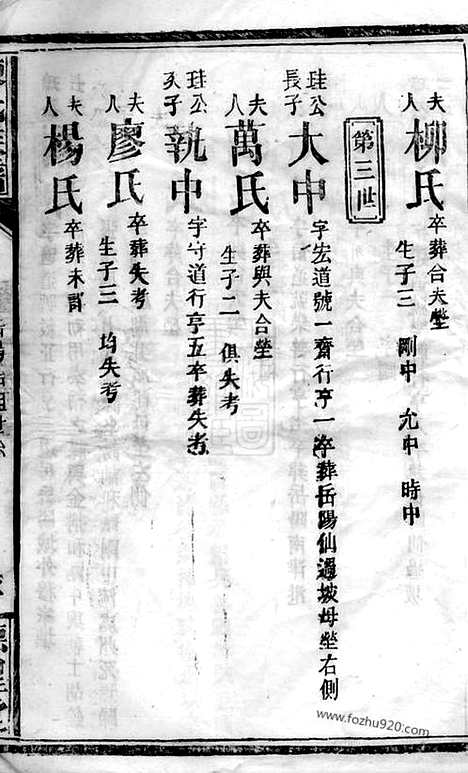 夫人柳氏 卒葬合夫塋 生子三 剛中 允中 時中
第三世
珪公長子大中 字宏道號一齋行亨一卒葬岳陽仙過坡母塋右側
夫人萬氏 卒葬與夫合塋 生子二 俱失考
珪公次子執中 字守道行亨五卒葬失考
夫人廖氏 卒葬失考 生子三 均失考
夫人楊氏 卒葬未詳
www.fozhu920.com